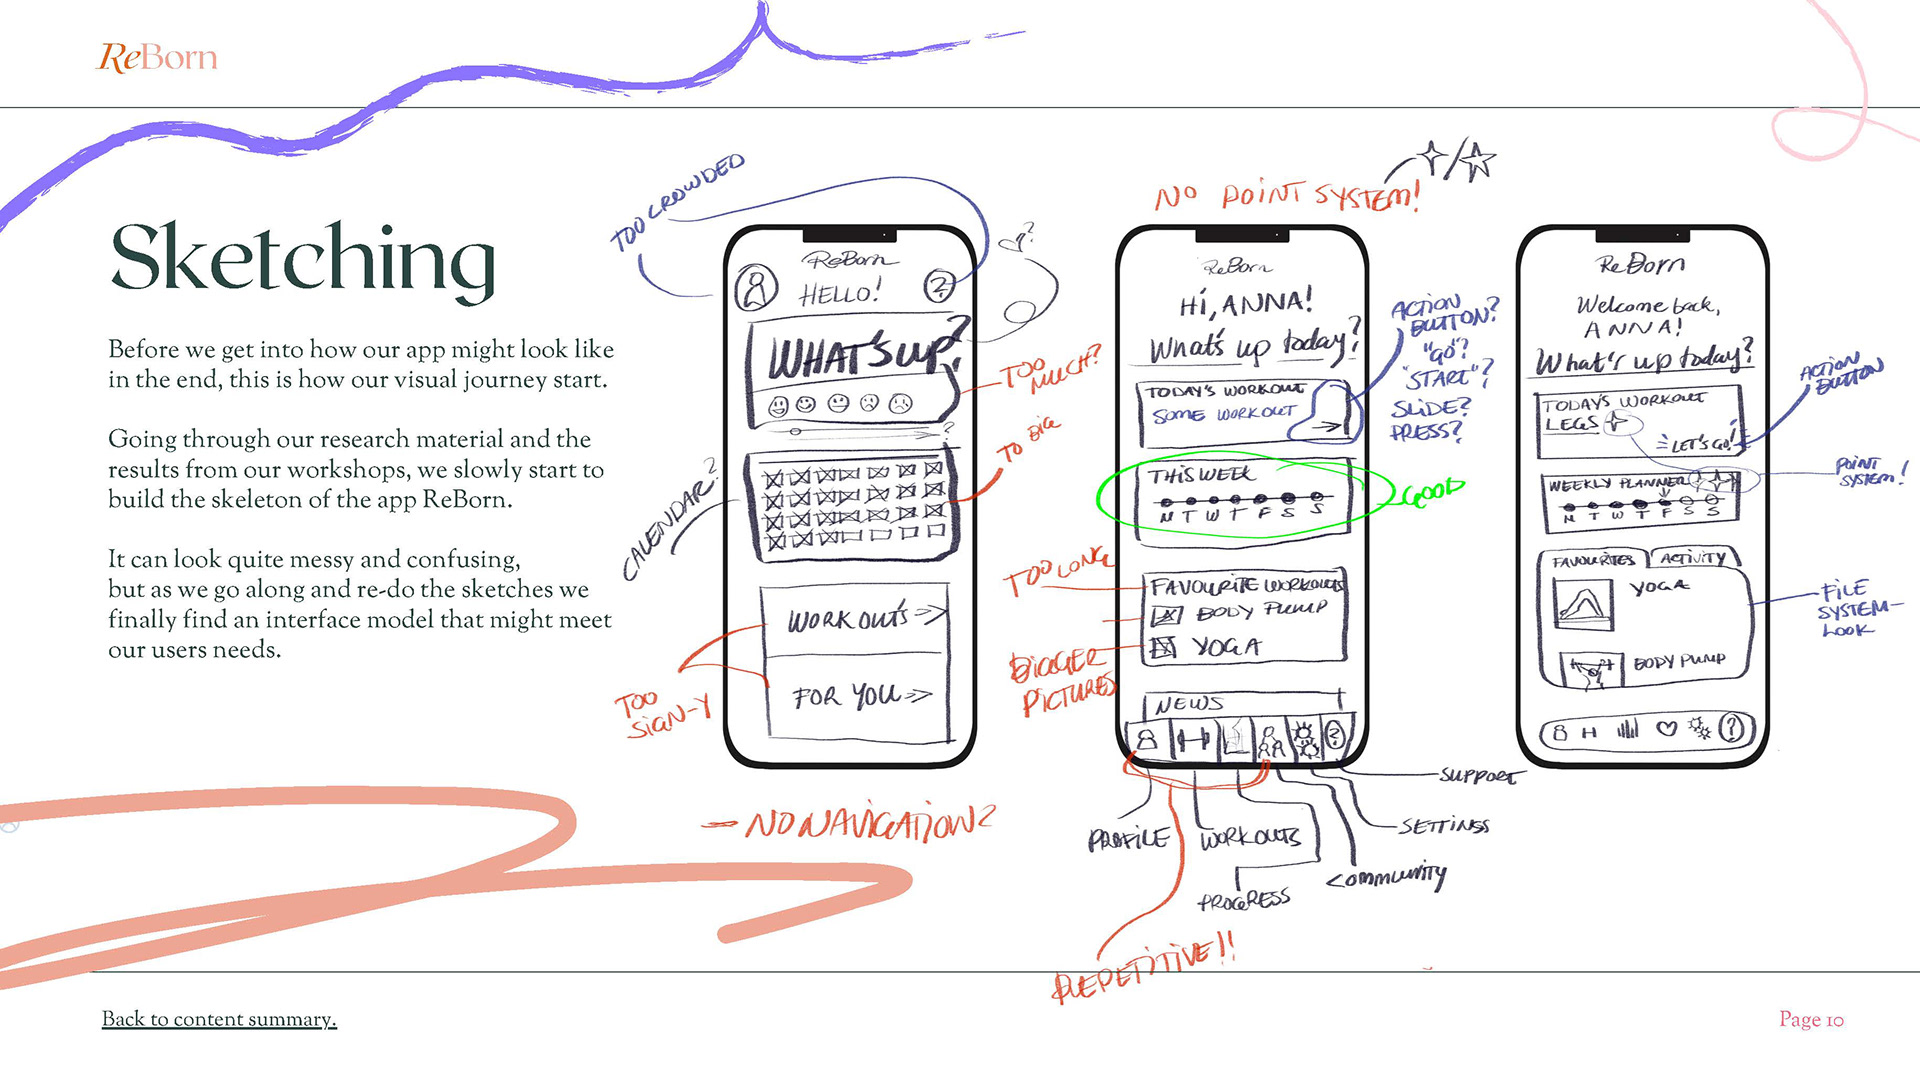 ReBorn
Sketching
Before we get into how our app might look like
in the end, this is how our visual journey start.
Going through our research material and the
results from our workshops, we slowly start to
build the skeleton of the app ReBorn.
It can look quite messy and confusing,
but as we go along and re-do the sketches we
finally find an interface model that might meet
our users needs.
TOO CROWDED
ReBorn
HELLO!
?
?
WHAT'S UP?
TOO
MUCH?
?
TO BIG
CALENDAR?
WORKOUTS
FOR YOU
TOO
SIGN-Y
- NO NAVIGATION?
NO POINT SYSTEM!
ReBorn
Hi, ANNA!
What's up today?
TODAY'S WORKOUT
SOME WORKOUT
ACTION
BUTTON?
"GO"?
"START"?
SLIDE?
PRESS?
THIS WEEK
M T W T F S S
GOOD
TOO LONG
FAVOURITE WORKOUTS
BODY PUMP
YOGA
BIGGER
PICTURES
NEWS
?
SUPPORT
SETTINGS
COMMUNITY
PROFILE
WORKOUTS
PROGRESS
REPETITIVE!!
ReBorn
Welcome back,
ANNA!
What's up today?
TODAY'S WORKOUT
LEGS
LET'S GO!
ACTION
BUTTON
POINT
SYSTEM!
WEEKLY PLANNER
M T W T F S S
FAVOURITES
ACTIVITY
YOGA
BODY PUMP
FILE
SYSTEM-
LOOK
?
Back to content summary.
Page 10